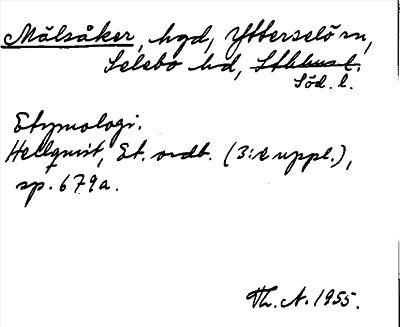 Målsåker, hgd, Ytterselö sn,
Selebo hd, Sthlms l.
Söd. l.
Etymologi.
Hellquist, Et. ordb. (3:e uppl.),
sp. 679a.
Th. A. 1955.